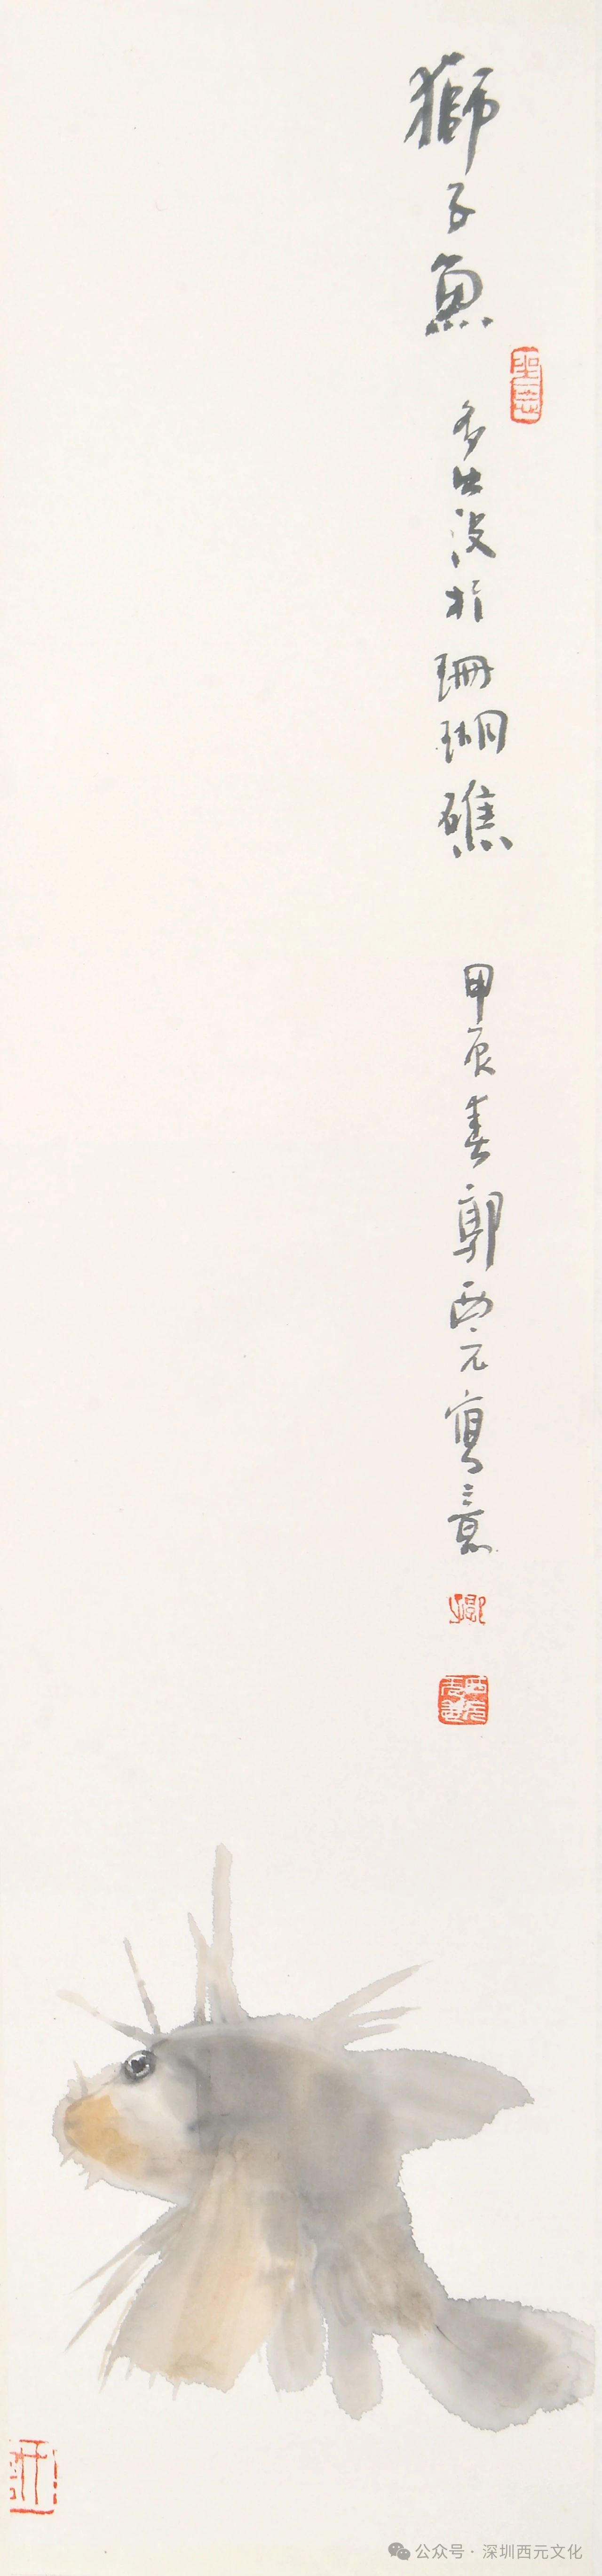 獅子魚
多出没於珊瑚礁
甲辰春郭西元寫意
公众号·深圳西元文化